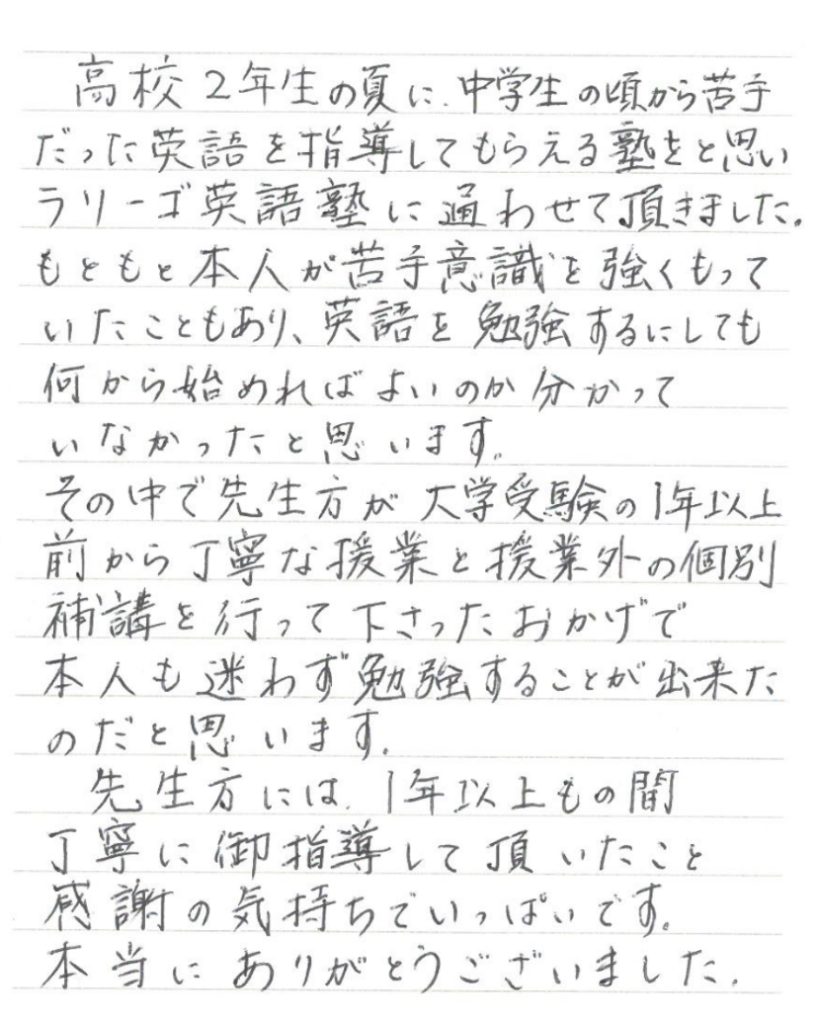 高校2年生の夏に、中学生の頃から苦手
だった英語を指導してもらえる塾をと思い
ラリーゴ英語塾に通わせて頂きました。
もともと本人が苦手意識を強くもって
いたこともあり、英語を勉強するにしても
何から始めればよいのか分かって
いなかったと思います。
その中で先生方が大学受験の1年以上
前から丁寧な授業と授業外の個別
補講を行って下さったおかげで
本人も迷わず勉強することが出来た
のだと思います。
先生方には、1年以上もの間
丁寧に御指導して頂いたこと
感謝の気持ちでいっぱいです。
本当にありがとうございました。